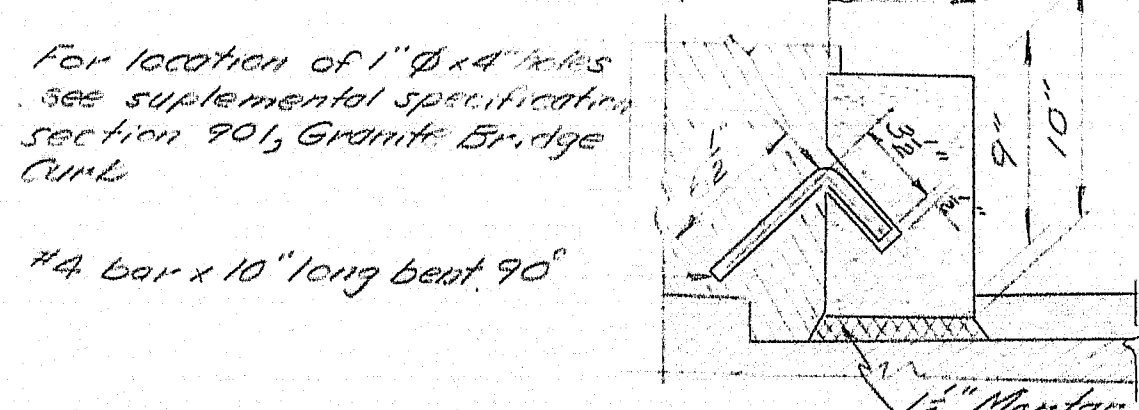 For location of 1" Ø x 4" holes
see suplemental specification
section 901, Granite Bridge
Curb
#4 bar x 10" long bent 90°
3 1/2"
1/2"
9"
10"
Mortar